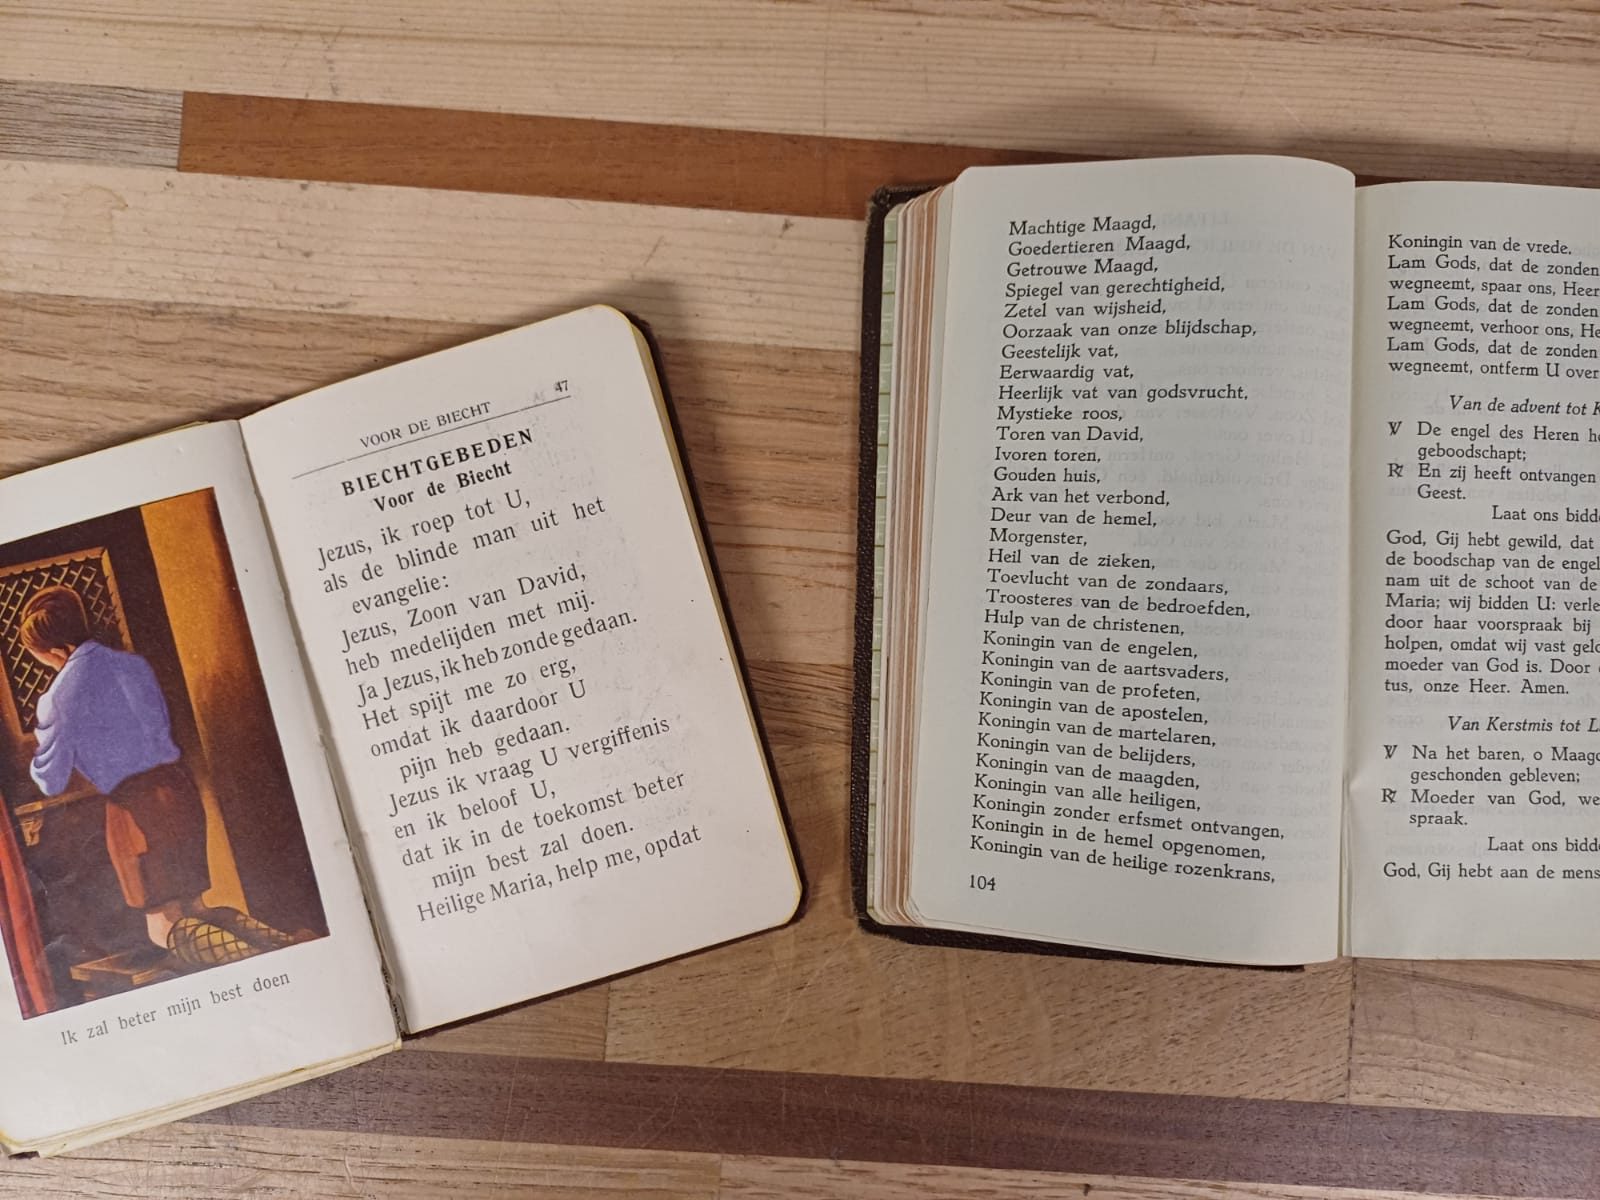 Ik zal beter mijn best doen
VOOR DE BIECHT 47
BIECHTGEBEDEN
Voor de Biecht
Jezus, ik roep tot U,
als de blinde man uit het
evangelie:
Jezus, Zoon van David,
heb medelijden met mij.
Ja Jezus, ik heb zonde gedaan.
Het spijt me zo erg,
omdat ik daardoor U
pijn heb gedaan.
Jezus ik vraag U vergiffenis
en ik beloof U,
dat ik in de toekomst beter
mijn best zal doen.
Heilige Maria, help me, opdat
Machtige Maagd,
Goedertieren Maagd,
Getrouwe Maagd,
Spiegel van gerechtigheid,
Zetel van wijsheid,
Oorzaak van onze blijdschap,
Geestelijk vat,
Eerwaardig vat,
Heerlijk vat van godsvrucht,
Mystieke roos,
Toren van David,
Ivoren toren,
Gouden huis,
Ark van het verbond,
Deur van de hemel,
Morgenster,
Heil van de zieken,
Toevlucht van de zondaars,
Troosteres van de bedroefden,
Hulp van de christenen,
Koningin van de engelen,
Koningin van de aartsvaders,
Koningin van de profeten,
Koningin van de apostelen,
Koningin van de martelaren,
Koningin van de belijders,
Koningin van de maagden,
Koningin van alle heiligen,
Koningin zonder erfsmet ontvangen,
Koningin in de hemel opgenomen,
Koningin van de heilige rozenkrans,
104
Koningin van de vrede.
Lam Gods, dat de zonden
wegneemt, spaar ons, Heer
Lam Gods, dat de zonden
wegneemt, verhoor ons,
Lam Gods, dat de zonden
wegneemt, ontferm U over
Van de advent tot
℣ De engel des Heren
geboodschapt;
℟ En zij heeft ontvangen
Geest.
Laat ons
God, Gij hebt gewild, dat
de boodschap van de
nam uit de schoot van de
Maria; wij bidden U:
door haar voorspraak bij
holpen, omdat wij vast
moeder van God is. Door
tus, onze Heer. Amen.
Van Kerstmis tot
℣ Na het baren, o
geschonden gebleven;
℟ Moeder van God,
spraak.
Laat ons
God, Gij hebt aan de